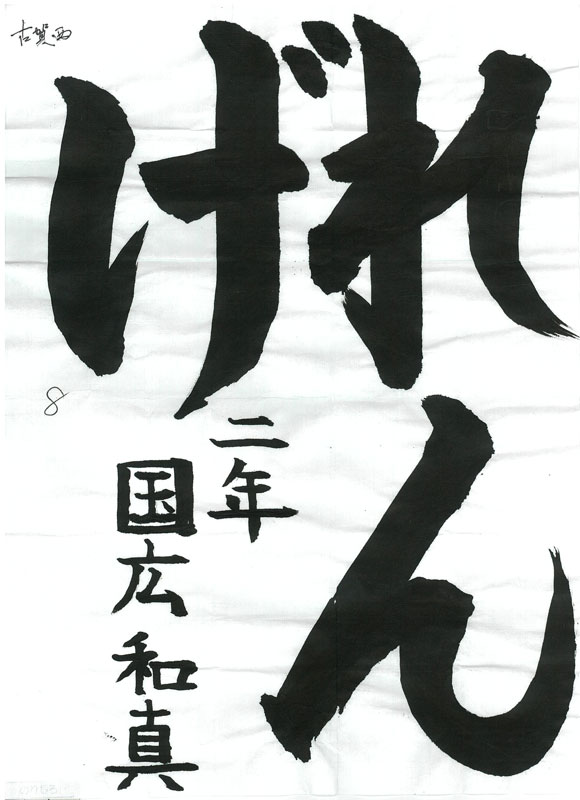 れん
げ
二年
国広和真
古賀西
8